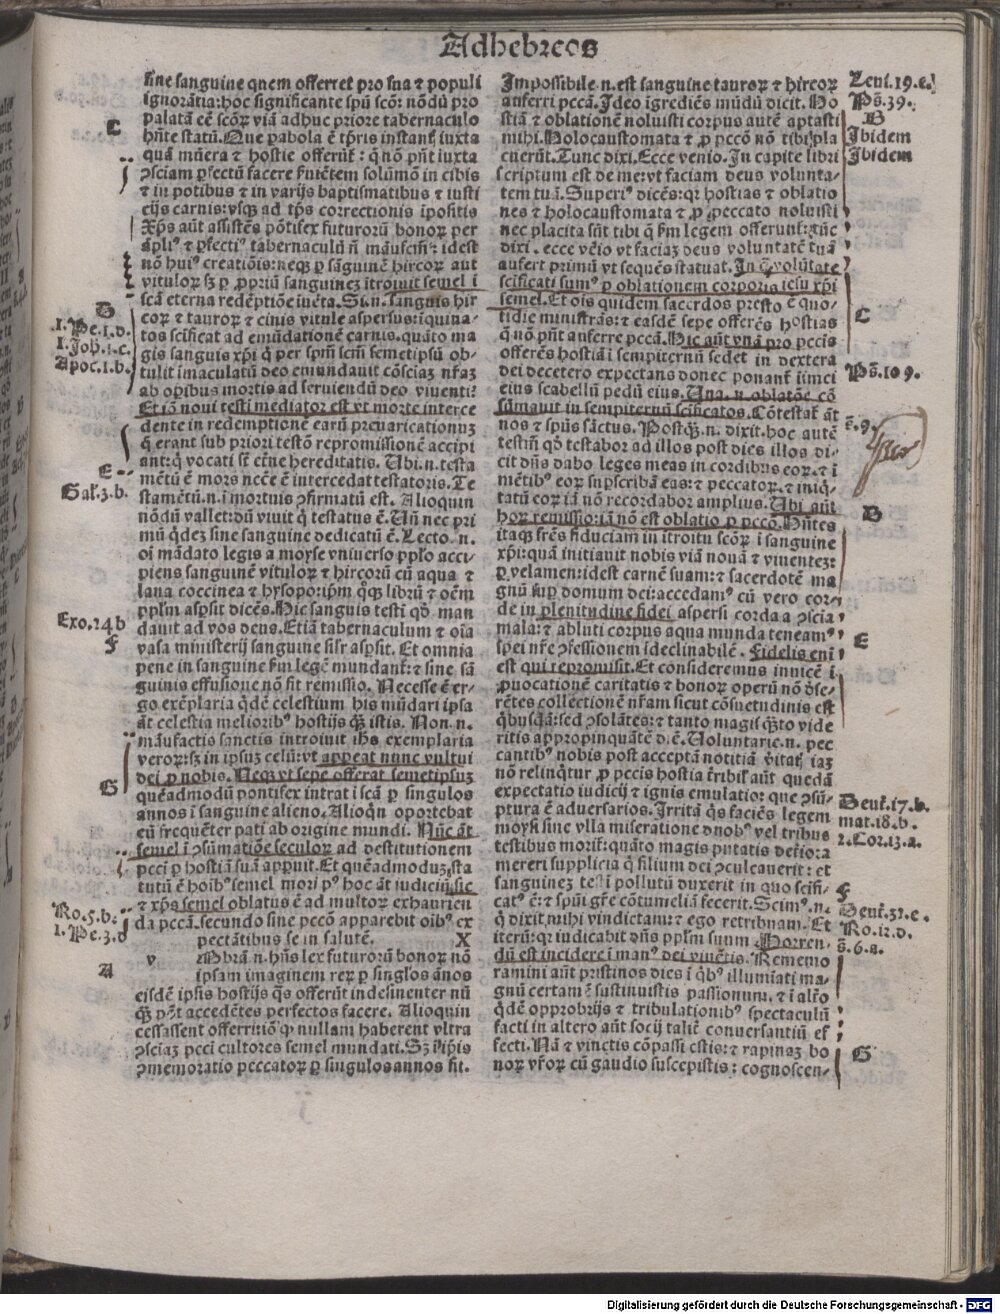 Ad hebreos
sine sanguine quem offerret pro sua ⁊ populi
ignorãtia: hoc significante spũ scõ: nõdũ pro
palatã eẽ scõꝝ viã adhuc priore tabernaculo
hñte statũ. Que ꝑabola ẽ tꝑis instantꝭ iuxta
quã mũera ⁊ hostie offerũtꝭ: q̃ nõ pñt iuxta
ꝯsciam ꝑfectũ facere ẽuiẽtem solũmõ in cibis
⁊ in potibus ⁊ in varijs baptismatibus ⁊ iusti
cijs carnis: vsqꝫ ad tꝑs correctionis ĩpositis
Xp̃s aũt assistẽs põtifex futurorũ bonoꝝ per
ãpliꝰ ⁊ ꝑfectiꝰ tabernaculũ ñ mãufcm̃: idest
nõ huiꝰ creatiõis: neqꝫ ꝑ sãguinẽ hircoꝝ aut
vituloꝝ sꝫ ꝑ ꝓpriũ sanguineꝫ ĩtroiuit semel ĩ
scã eterna redẽptiõe iuẽta. Si.n. sanguis hir
coꝝ ⁊ tauroꝝ ⁊ cinis vitule aspersus: iquina-
tos scificat ad emũdationẽ carnis. quãto ma
gis sanguis xp̃i q̃ per spm̃ scm̃ semetipsũ ob-
tulit imaculatũ deo emundauit cõsciaꝫ nr̃aꝫ
ab oꝑibus mortis ad seruiendũ deo viuenti:
Et iõ noui testi mediator est vt morte interce
dente in redemptionẽ earũ preuaricationuꝫ
q̃ erant sub priori testõ repromissionẽ accipi
ant: q̃ vocati st̃ et̃ne hereditatis. Ubi.n. testa
mẽtũ ẽ mors nccẽ ẽ intercedat testatoris. Te
stamẽtũ.n. ĩ mortuis ꝯfirmatũ est. Alioquin
nõdũ vallet: dũ viuit q̃ testatus ẽ. Uñ nec pri
mũ q̃deꝫ sine sanguine dedicatũ ẽ. Lecto.n.
oi mãdato legis a moyse vniuerso pplo acci-
piens sanguinẽ vituloꝝ ⁊ hircorũ cũ aqua ⁊
lana coccinea ⁊ hysopo: ipm̃ q̃qꝫ librũ ⁊ oẽm
pplm̃ aspsit dicẽs. Hic sanguis testi qð man
dauit ad vos deus. Etiã tabernaculum ⁊ oĩa
vasa ministerij sanguine silr̃ aspsit. Et omnia
pene in sanguine ẽm legẽ mundantꝭ: ⁊ sine sã
guinis effusione nõ fit remissio. Necesse ẽ er-
go exẽplaria q̃dẽ celestium his mũdari ipsa
ãt celestia melioribꝰ hostijs qꝫ istis. Non.n.
mãufactis sanctis introiuit ihs exemplaria
veroꝝ: sꝫ in ipsuꝫ celũ: vt appeat nunc vultui
dei ꝑ nobis. Neqꝫ vt sepe offerat semetipsuꝫ
quẽadmodũ pontifex intrat ĩ scã ꝑ singulos
annos ĩ sanguine alieno. Alioq̃n oportebat
eũ frequẽter pati ab origine mundi. Nũc ãt
semel ĩ ꝯsũmatiõe seculoꝝ ad destitutionem
pcci ꝑ hostiã suã apꝑuit. Et quẽadmoduꝫ sta
tutũ ẽ hoibꝰ semel mori pꝰ hoc ãt iudiciũ sic
⁊ xp̃s semel oblatus ẽ ad multoꝝ exhaurien
da pccã. secundo sine pccõ apparebit oibꝰ ex
pectãtibus se in salutẽ. X
v Mbrã n. hñs lex futurorũ bonoꝝ nõ
ipsam imaginem reꝝ ꝑ singlos ãnos
eisdẽ ipsis hostijs q̃s offerũt indesinenter nũ
qꝫ põt accedẽtes perfectos facere. Alioquin
cessassent offerri: tiõ ꝙ nullam haberent vltra
ꝯsciaꝫ pcci cultores semel mundati. Sꝫ ĩ ip̃is
ꝯmemoratio peccatoꝝ ꝑ singulos annos fit.
C
D
1.Pe.1.d.
1.Joh.1.c.
Apoc.1.b.
E
Gal.3.b.
Exo.24b
F
G
Ro.5.b.
1.Pe.3.d
A
Impossibile.n. est sanguine tauroꝝ ⁊ hircoꝝ
auferri pccã. Ideo igrediẽs mũdũ dicit. Ho
stiã ⁊ oblationẽ noluisti corpus autẽ aptasti
mihi. Holocaustomata ⁊ ꝓ pccõ nõ tibi pla
cuerũt. Tunc dixi. Ecce venio. In capite libri
scriptum est de me: vt faciam deus volunta-
tem tuã. Superiꝰ dicẽs: qꝛ hostias ⁊ oblatio
nes ⁊ holocaustomata ⁊ ꝓ peccato noluisti
nec placita sũt tibi q̃ ẽm legem offerunt: tũc
dixi. ecce vẽio vt faciaꝫ deus voluntatẽ tuã
aufert primũ vt sequẽs statuat. In q̃ volũtate
scificati sumꝰ ꝑ oblationem corporis iesu xp̃i
semel. Et ois quidem sacerdos presto ẽ quo-
tidie ministrãs: ⁊ easdẽ sepe offerẽs hostias
q̃ nõ pñt auferre pccã. Hic aũt vnã pro pccis
offerẽs hostiã ĩ sempiternũ sedet in dextera
dei decetero expectans donec ponantꝭ iimci
eius scabellũ pedũ eius. Una.n. oblatõe cõ
sũmauit in sempiternũ scificatos. Cõtestatꝭ ãt
nos ⁊ spũs sãctus. Postqꝫ.n. dixit. hoc autẽ
testm̃ qð testabor ad illos post dies illos di-
cit dñs dabo leges meas in cordibus eoꝝ. ⁊ ĩ
mẽtibꝰ eoꝝ supscribã eas: ⁊ peccatoꝝ. ⁊ iniq̃-
tatũ eoꝝ iã nõ recordabor amplius. Ubi aũt
hoꝝ remissio: iã nõ est oblatio ꝑ pccõ. Hñtes
itaqꝫ fr̃es fiduciam in itroitu scõꝝ ĩ sanguine
xp̃i: quã initiauit nobis viã nouã ⁊ viuenteꝫ:
ꝑ velamen: idest carnẽ suam: ⁊ sacerdotẽ ma
gnũ sup domum dei: accedamꝰ cũ vero cor-
de in plenitudine fidei aspersi corda a ꝯscia
mala: ⁊ abluti corpus aqua munda teneamꝰ
spei nr̃e ꝯfessionem ideclinabilẽ. Fidelis enĩ
est qui repromisit. Et consideremus inuicẽ ĩ
ꝓuocationẽ caritatis ⁊ bonoꝝ operũ nõ ðse-
rẽtes collectionẽ nr̃am sicut cõsuetudinis est
q̃busdã: sed ꝯsolãtes: ⁊ tanto magis q̃to vide
ritis appropinquãtẽ diẽ. Uoluntarie.n. pec
cantibꝰ nobis post acceptã notitiã ṽitatꝭ iaꝫ
nõ relinq̃tur ꝓ pccis hostia tr̃ribilꝭ aũt quedã
expectatio iudicij ⁊ ignis emulatio: que ꝯsũ-
ptura ẽ aduersarios. Irritã q̃s faciẽs legem
moysi sine vlla miseratione duobꝰ vel tribus
testibus moritꝭ: quãto magis putatis deriora
mereri supplicia q̃ filium dei ꝯculcauerit: ⁊
sanguineꝫ testi pollutũ duxerit in quo scifi-
catꝰ ẽ: ⁊ spũi gr̃e cõtumeliã fecerit. Scimꝰ.n.
q̃ dixit mihi vindictam: ⁊ ego retribuam. Et
iterũ: qꝛ iudicabit dñs pplm̃ suum. Horren-
dũ est incidere ĩ manꝰ dei viuẽtis. Rememo
ramini aũt pristinos dies ĩ q̃bꝰ illumiati ma-
gnũ certamẽ sustinuistis passionum. ⁊ ĩ altr̃o
q̃dẽ opprobrijs ⁊ tribulationibꝰ spectaculũ
facti in altero aũt socij taliẽ conuersantiũ ef
fecti. Nã ⁊ vinctis cõpassi estis: ⁊ rapinaꝫ bo
noꝝ vr̃oꝝ cũ gaudio suscepistis: cognoscen-
Leui.19.e.
Ps̃.39.
B
Ibidem
Ibidem
C
Ps̃.109.
ẽ.9.
D
E
Deut.17.b.
mat.18.b.
2.Cor.13.a.
F
Deut.32.e.
Ro.12.d.
ẽ.6.a.
G
Digitalisierung gefördert durch die Deutsche Forschungsgemeinschaft - DFG